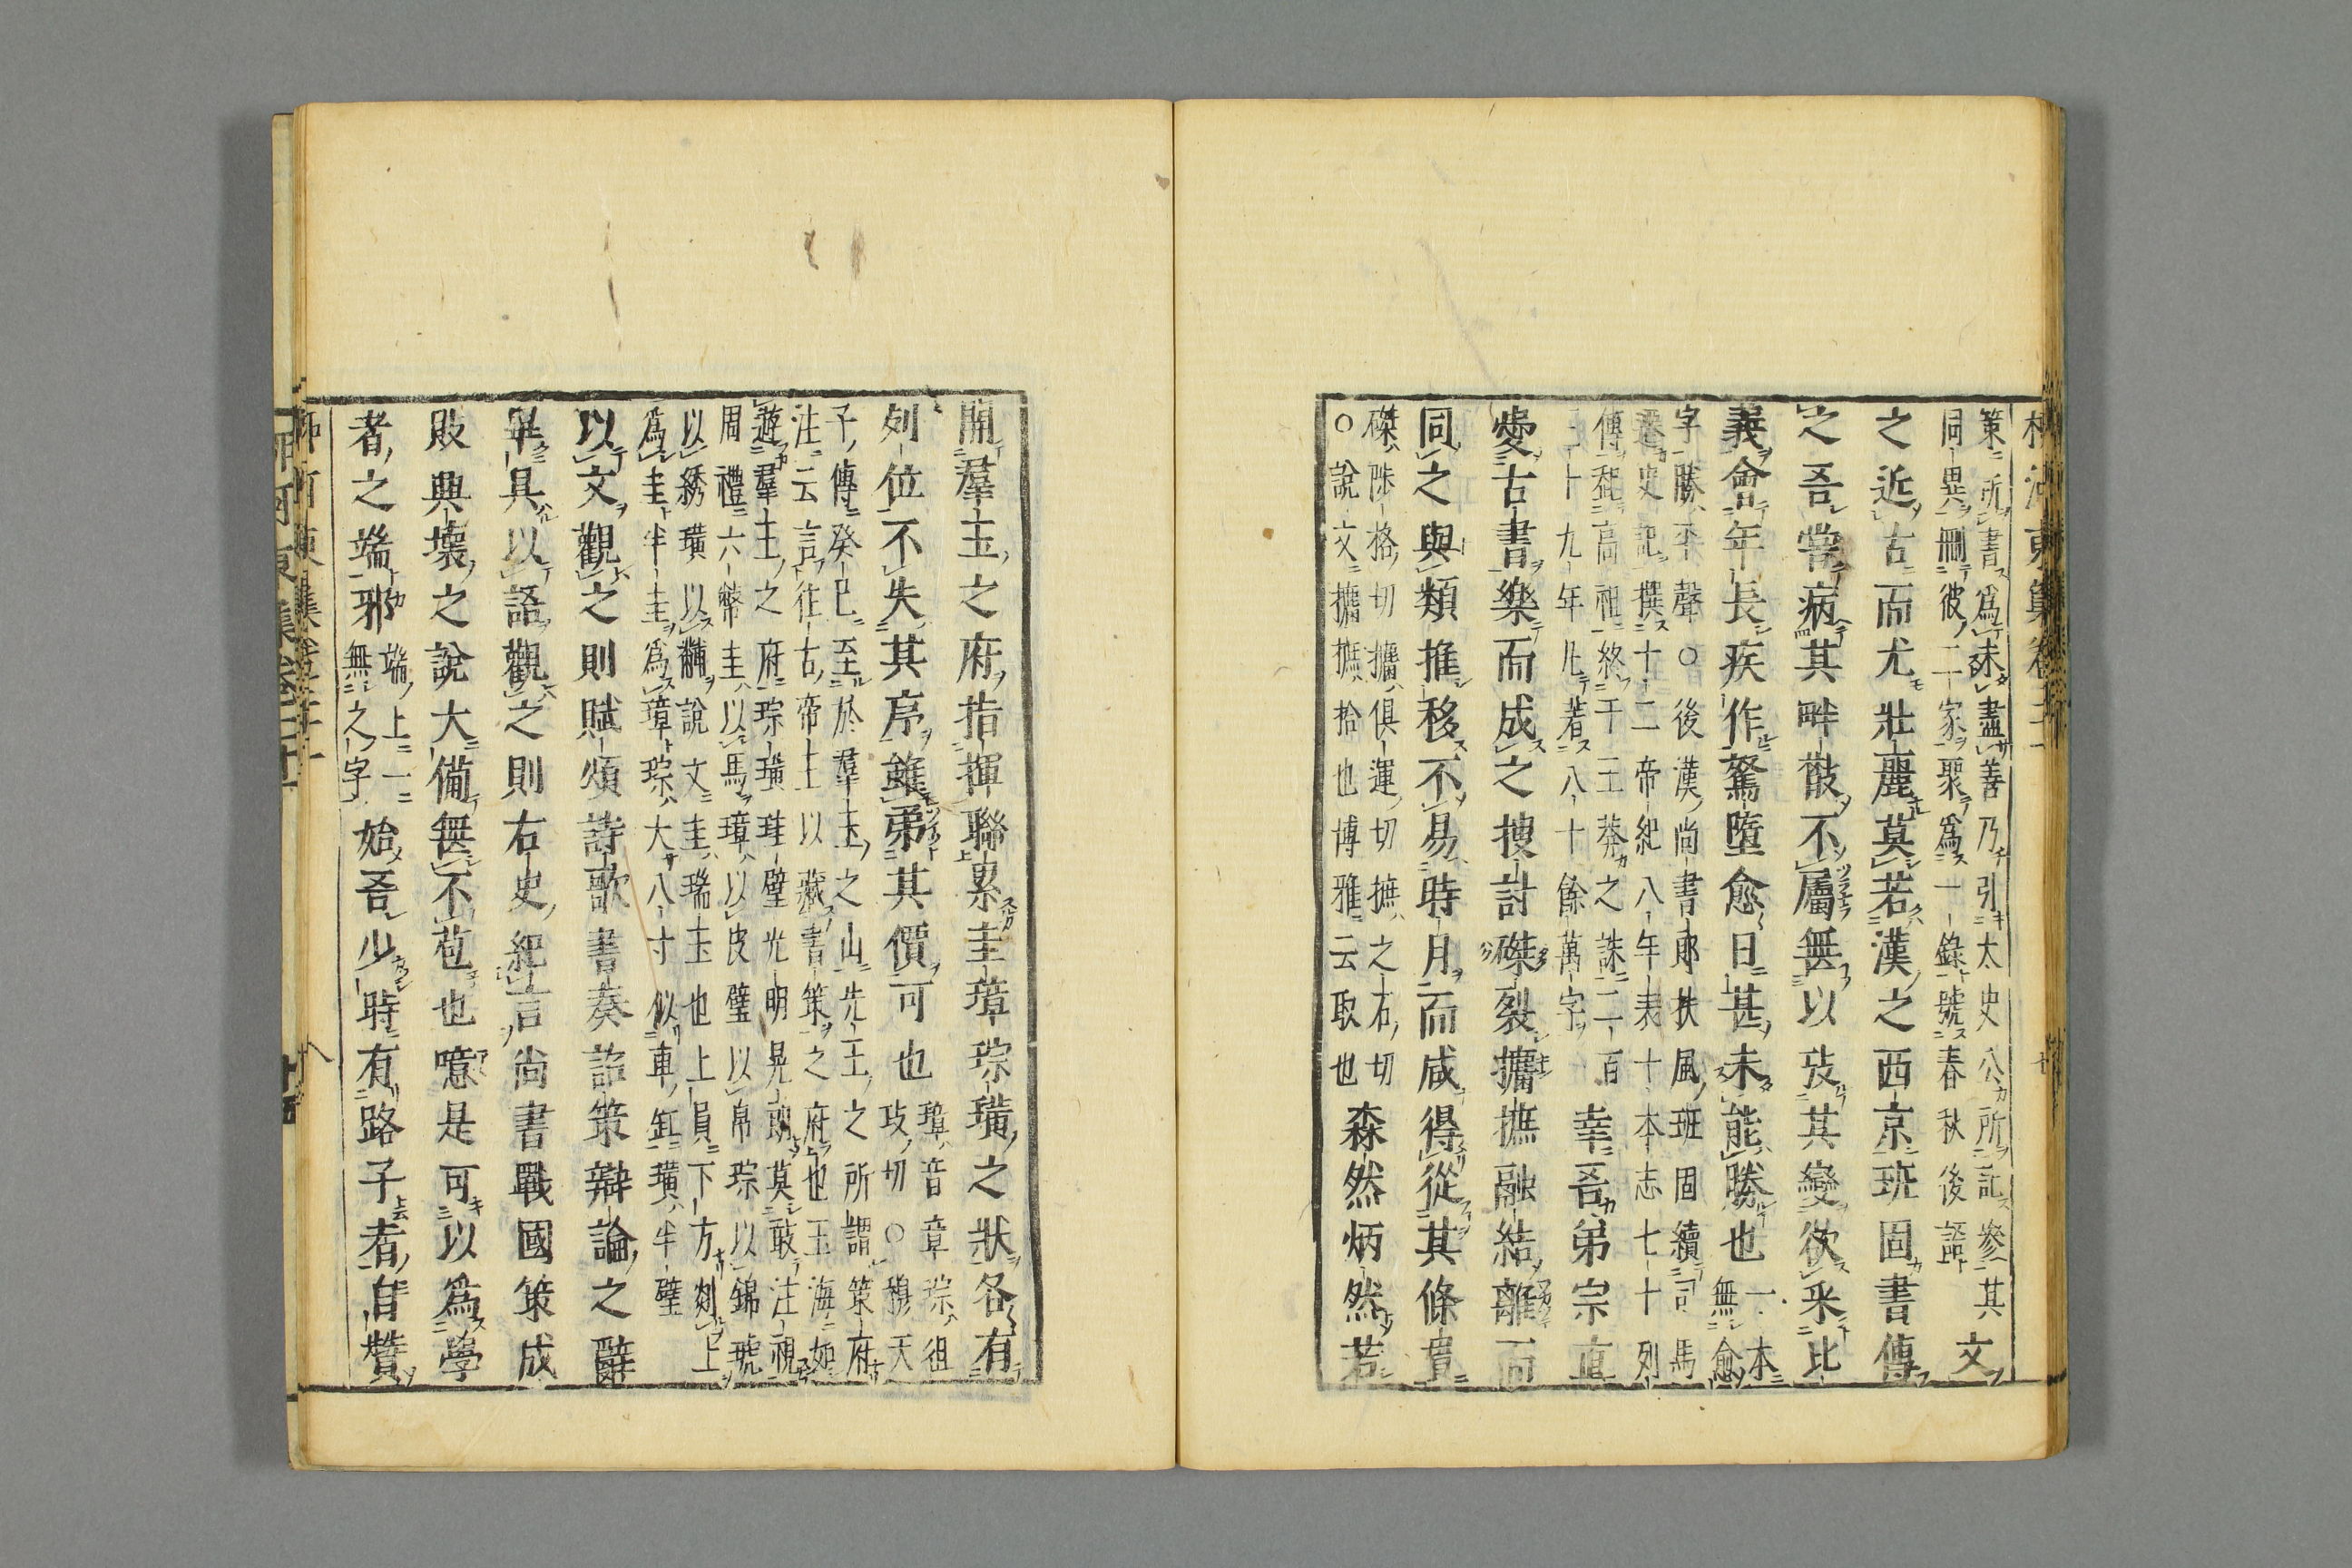 策所書爲未盡善乃引太史公所記參其
同異刪彼二家聚爲一錄號春秋後語
文
之近古而尤壯麗莫若漢之西京班固書傳
之吾嘗病其畔散不屬無以攷其變欲采比
義會年長疾作駑墮愈日甚未能勝也
一本
無愈
字勝平聲○後漢尚書郎扶風班固續司馬
遷史記撰十二帝紀八年表十本志七十列
傳起高祖終于王莽之誅二百
三十九年凡著八十餘萬字
幸吾弟宗直
愛古書樂而成之搜討磔裂攟摭融結離而
同之與類推移不易時月而咸得從其條貫
磔陟格切攟俱運切摭之石切
○說文攟摭拾也博雅云取也
森然炳然若
開羣玉之府指揮聯累圭璋琮璜之狀各有
列位不失其序雖第其價可也
璋音章琮徂
攻切○穆天
子傳癸巳至於羣玉之山先王之所謂策府
注云言往古帝王以藏書策之府也玉海如
遊羣玉之府琮璜珪璧光明晃朗莫敢注視
周禮六幣圭以馬璋以皮璧以帛琮以錦琥
以綉璜以黼說文圭瑞玉也上員下方剡上
爲圭半圭爲璋琮大八寸似車缸璜半璧
以文觀之則賦頌詩歌書奏詔策辯論之辭
畢具以語觀之則右史紀言尚書戰國策成
敗興壞之說大備無不苞也噫是可以爲學
者之端邪
端上一
無之字
始吾少時有路子者自贊